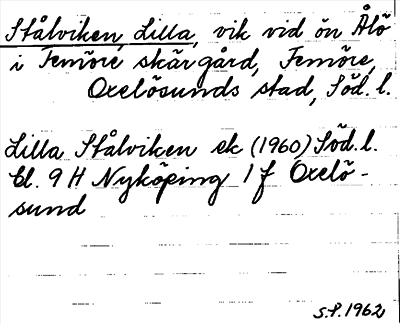 Stålviken, Lilla, vik vid ön Ålö
i Femöre skärgård, Femöre,
Oxelösunds stad, Söd. l.
Lilla Stålviken ek (1960) Söd. l.
bl. 9 H Nyköping 1 f Oxelö-
sund
S.P. 1962